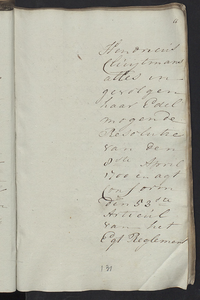 Henoneus
Cluijtmans
alles in
gevolgen
haar Edel
mogende
Resolutie
van den
8ste April
en agt
Conform
den 53ste
Articul
van het
Egt Reglement